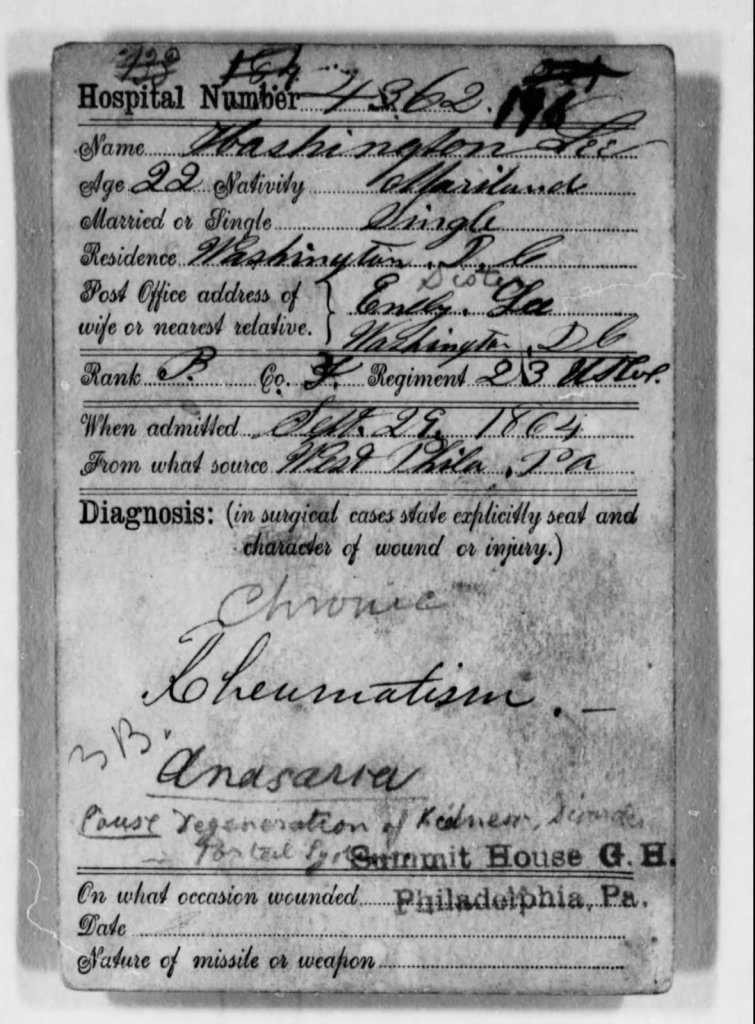 184
Hospital Number 4362. 196
Name Washington Lee
Age 22 Nativity Mariland
Married or Single Single
Residence Washington, D. C
Sister
Post Office address of
wife or nearest relative. } Emely. Lee
Washington, D C
Rank P. Co. F. Regiment 23 USCol.
When admitted Sept. 29. 1864
From what source West Phila, Pa
Diagnosis: (in surgical cases state explicitly seat and
character of wound or injury.)
Chronic
Rheumatism. —
Anasarca
Cause Degeneration of Kidneys, Disorder
Summit House G. H.
On what occasion wounded
Philadelphia, Pa.
Date
Nature of missile or weapon